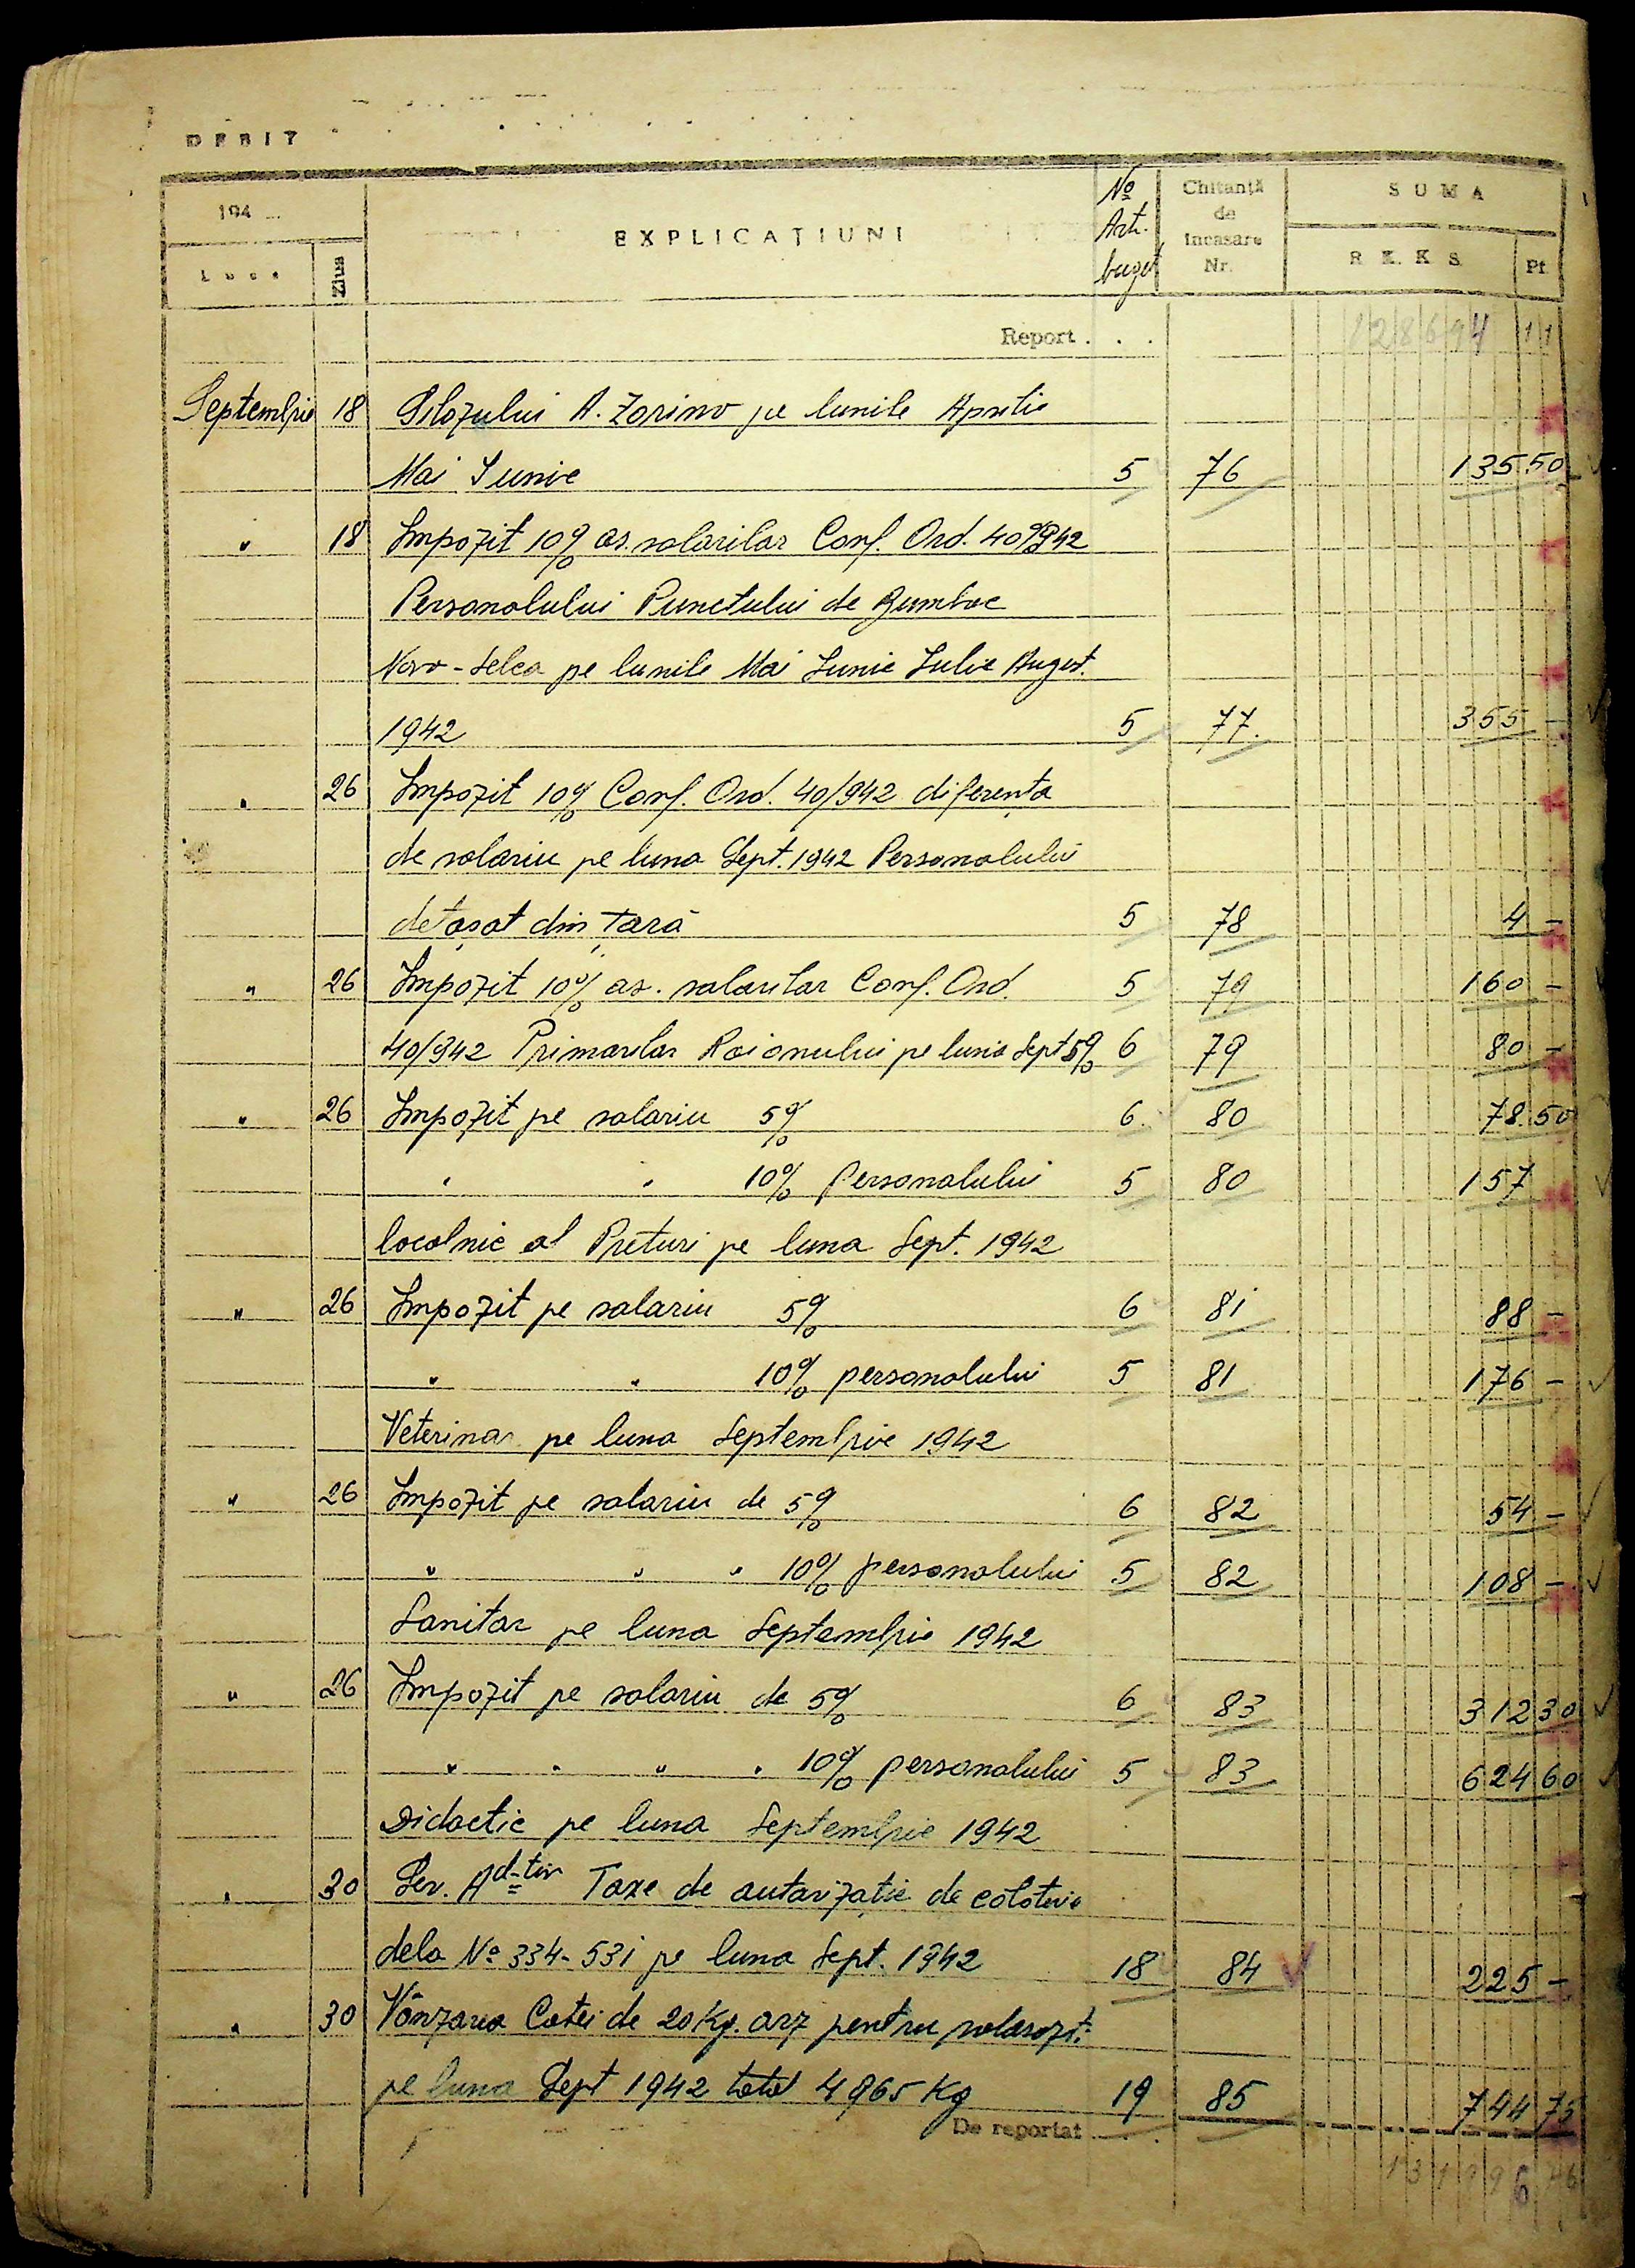 DEBIT
194 ...
Luna
Ziua
EXPLICAȚIUNI
No Art. buget
Chitanță de încasare Nr.
SUMA
R. K. K. S.
Pf.
Report . . . 128694 11
Septembrie 18 A. Zorino pe lunile Aprilie
Mai Iunie 5 76 135.50
" 18 Impozit 10% as. salarilor Conf. Ord. 40/942
Personalului Punctului de Bumbac
Novo-Selca pe lunile Mai Iunie Iulie August.
1942 5 77. 355 -
" 26 Impozit 10% Conf. Ord. 40/942 diferența
de salariu pe luna Sept. 1942 Personalului
detașat din Țară 5 78 4 -
" 26 Impozit 10% as. salarilor Conf. Ord. 5 79 160 -
40/942 Primarilor Raionului pe luna Sept 5% 6 79 80 -
" 26 Impozit pe salariu 5% 6. 80 78.50
" " 10% Personalului 5 80 157
localnic al Preturi pe luna Sept. 1942
" 26 Impozit pe salariu 5% 6 81 88 -
" " 10% personalului 5 81 176 -
Veterinar pe luna Septembrie 1942
" 26 Impozit pe salariu de 5% 6 82 54 -
" " " 10% personalului 5 82 108 -
Sanitar pe luna Septembrie 1942
" 26 Impozit pe salariu de 5% 6 83 312 30
" " " " 10% personalului 5 83 624 60
Didactic pe luna Septembrie 1942
" 30 Ser. Ad-tiv Taxe de autorizație de
dela No 334-531 pe luna Sept. 1942 18 84 225 -
" 30 Vânzarea Cotei de 20 Kg. orz pentru
pe luna Sept 1942 total 4965 Kg 19 85 744 75
De reportat 131996 76